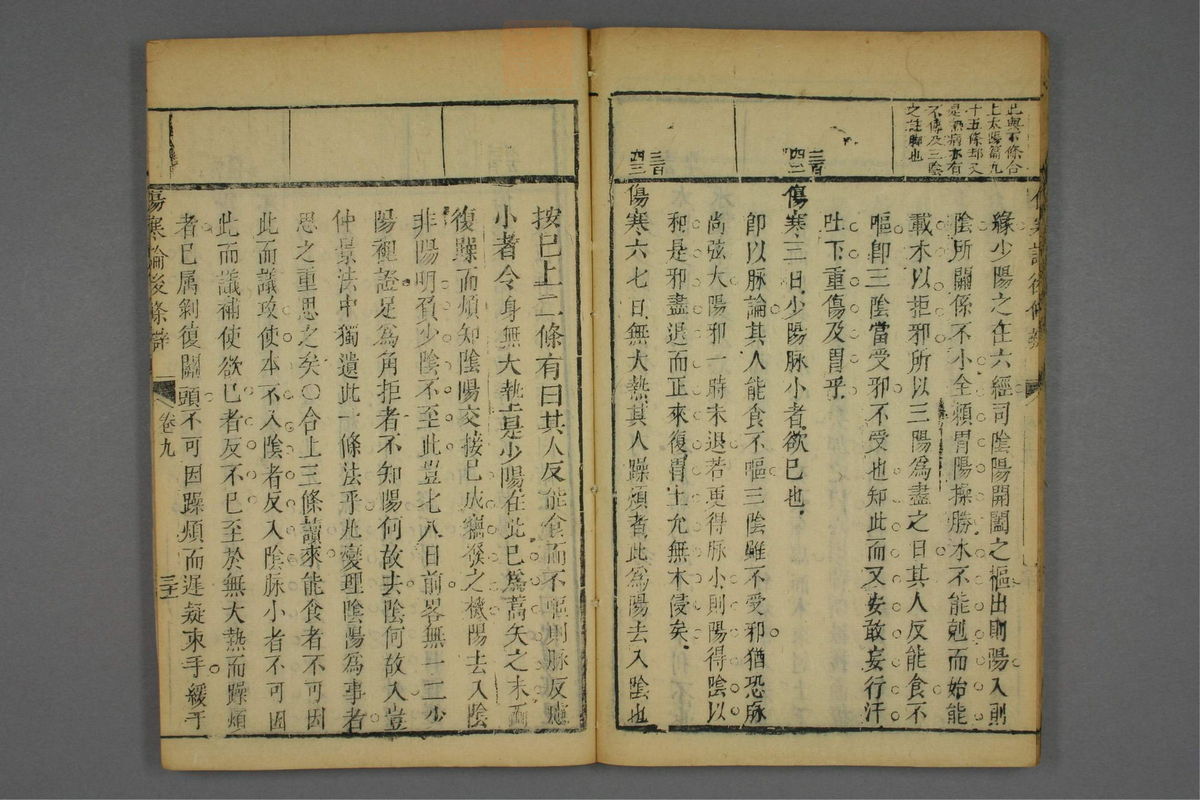 此與下條合
上太陽篇九
十五條却又
是熱病亦有
不傳及三陰
之註脚也
緣少陽之在六經司陰陽開闔之樞出則陽入則
陰所關係不小全賴胃陽操勝木不能剋而始能
載木以拒邪所以三陽為盡之日其人反能食不
嘔即三陰當受邪不受也知此而又安敢妄行汗
吐下重傷及胃乎
三百
四二
傷寒三日少陽脉小者欲已也
即以脉論其人能食不嘔三陰雖不受邪猶恐脉
尚弦大陽邪一時未退若更得脉小則陽得陰以
和是邪盡退而正來復胃土允無木侵矣
三百
四三
傷寒六七日無大熱其人躁煩者此為陽去入陰也
按已上二條有曰其人反能食而不嘔則脉反
小者今身無大熱是少陽在此已為蒿矢之末而
復躁而煩知陰陽交接已成之機陽去入陰
非陽明負少陰不至此豈七八日前畧無一二少
陽裡證足為角拒者不知陽何故去陰何故入豈
仲景法中獨遺此一條法乎凡燮理陰陽為事者
思之重思之矣〇合上三條讀來能食者不可因
此而議攻使本不入陰者反入陰脉小者不可因
此而議補使欲已者反不已至於無大熱而躁煩
者已属剝復關頭不可因躁煩而遲疑束手緩于
傷寒論後條辯
卷九